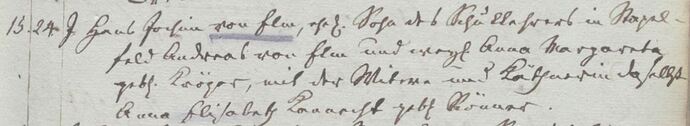 15. 24 J Hans Jochim von Elm, ehel. Sohn des Schullehrers in Stapel-
feld Andreas von Elm und weyl. Anna Margareta
geb. Kröger, mit der Witwe und Käthnerin daselbst
Anna Elisabeth geb. Rönner.